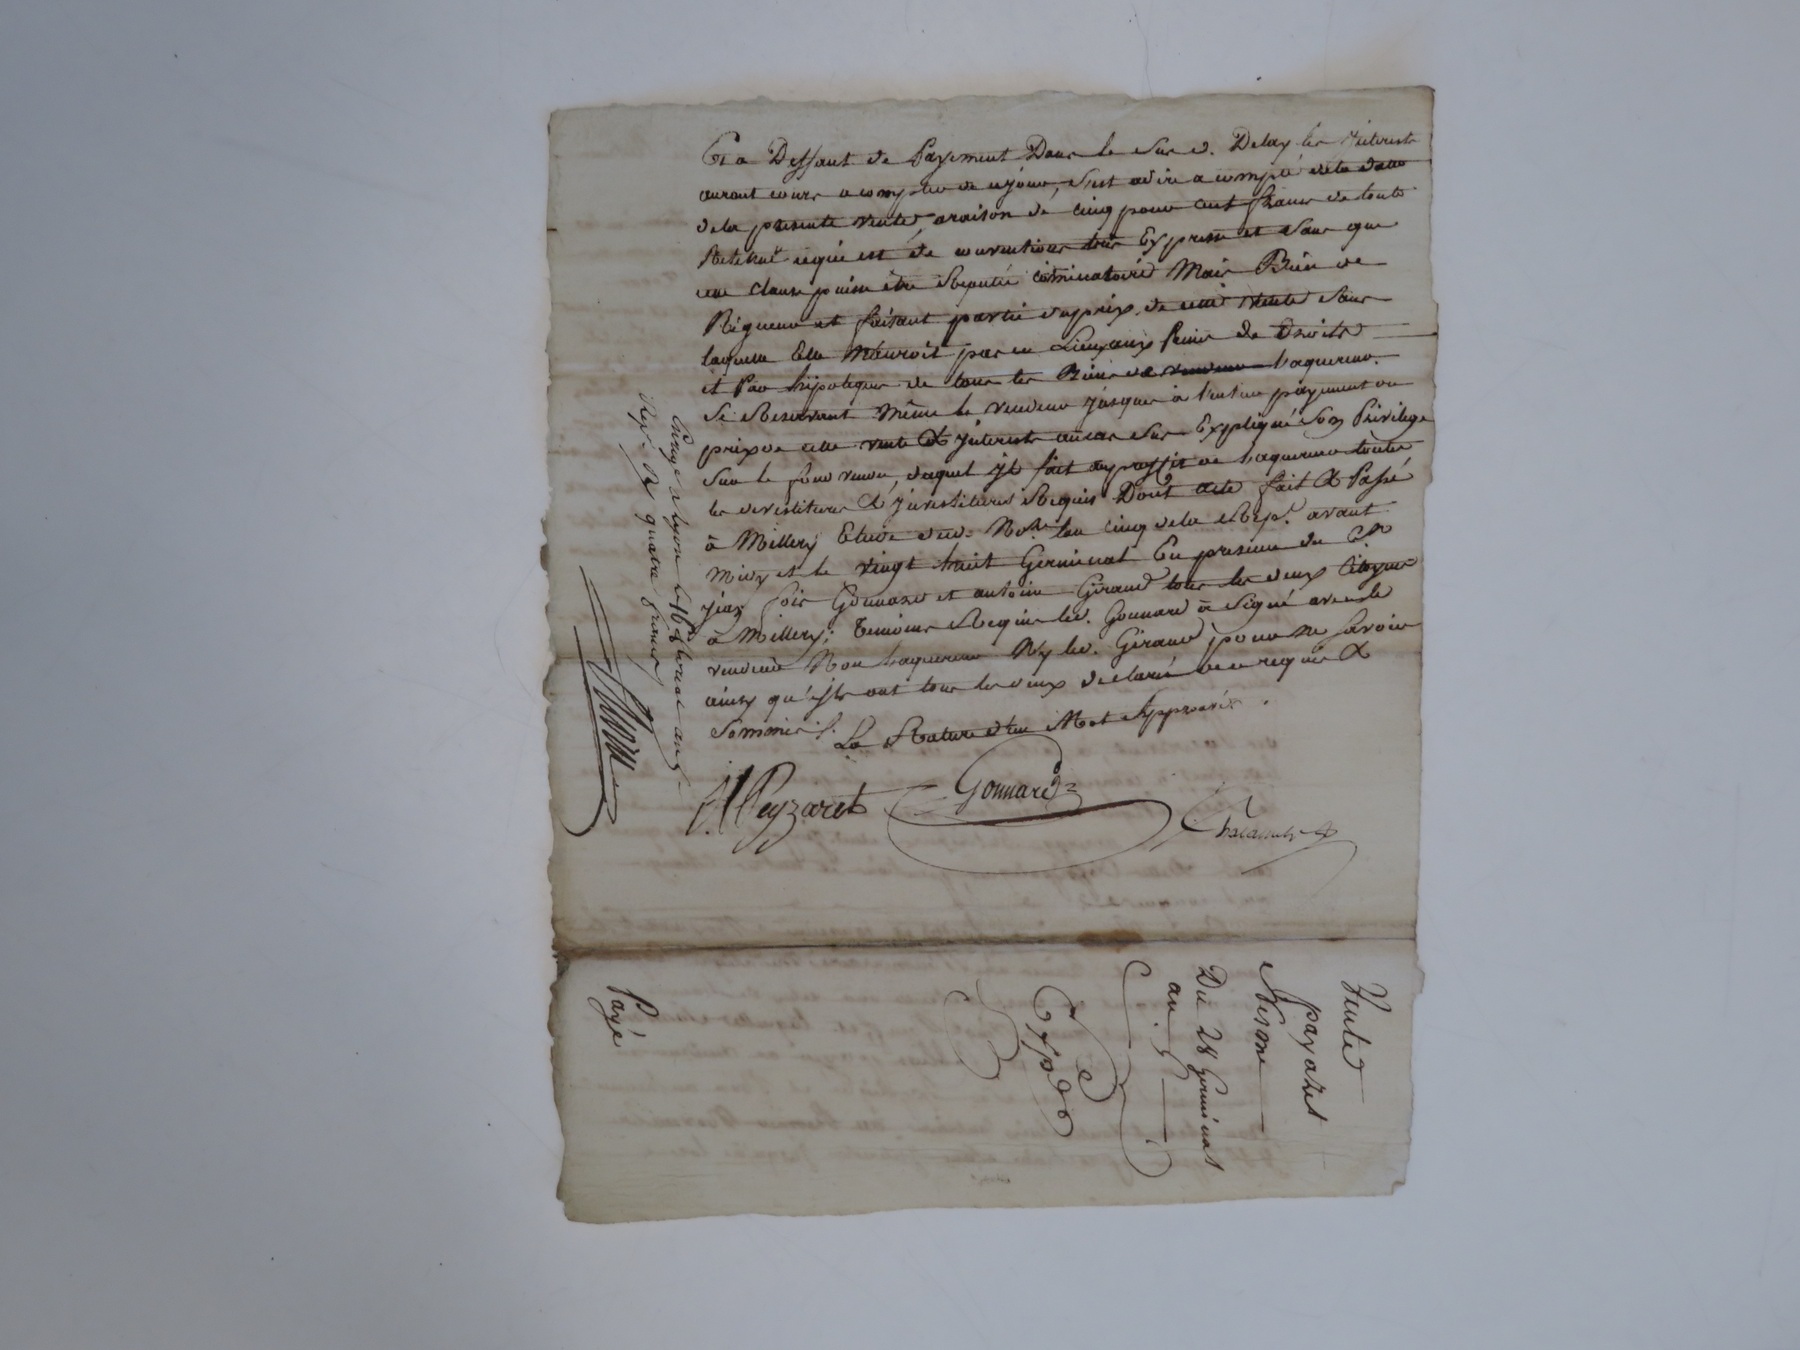 Et a Deffaut de Payement Dans le Sus d. Delay les Interests
auront cours a compter de ce jour, c'est a dire a compté de la datte
de la presente vente, araison de cinq pour cent frans de toute
Retenue ce qui est de convention tres Expresse et Sans que
cette clause puisse être Reputée cominatoire Mais Bien de
Régueur et faisant partie du prix de cette Vente Sans
laquelle Elle N'auroit pas eu Lieu aux Peine de Droits
et Par hipoteque de tous les Biens de laquereur.
Se Reservant Même le vendeur jusques à l'entier payement du
prix de cette vente & jnterests au cas Sus Expliqué Son Privilege
Sur le fond vendu, duquel jl fait au proffit de laquereur toutes
les devestitures & jnvestitures Requis Dont acte fait & Passé
à Millery Etude dud. Nore. lan cinq de la Rep.e avant
Midy et le vingt huit Germinal En presence du C.en
jean fois Gonnard et antoine Giraud tous les deux Citoyens
à Millery; temoins Requis led. Gonnard à Signé avec le
vendeur Non laquereur Ny led. Giraud pour ne Savoir
ainsy qu'jls ont tous les deux declaré de ce requis &
Sommés ./.
La Rature d'un Mot Approuvée .
Peyzaret Gonnard
Enregé a lyon le 16 floreal an 5
Reçu quatre francs
Vente
payazet
Nesme
Du 28 Germinal
an. 5
Payé